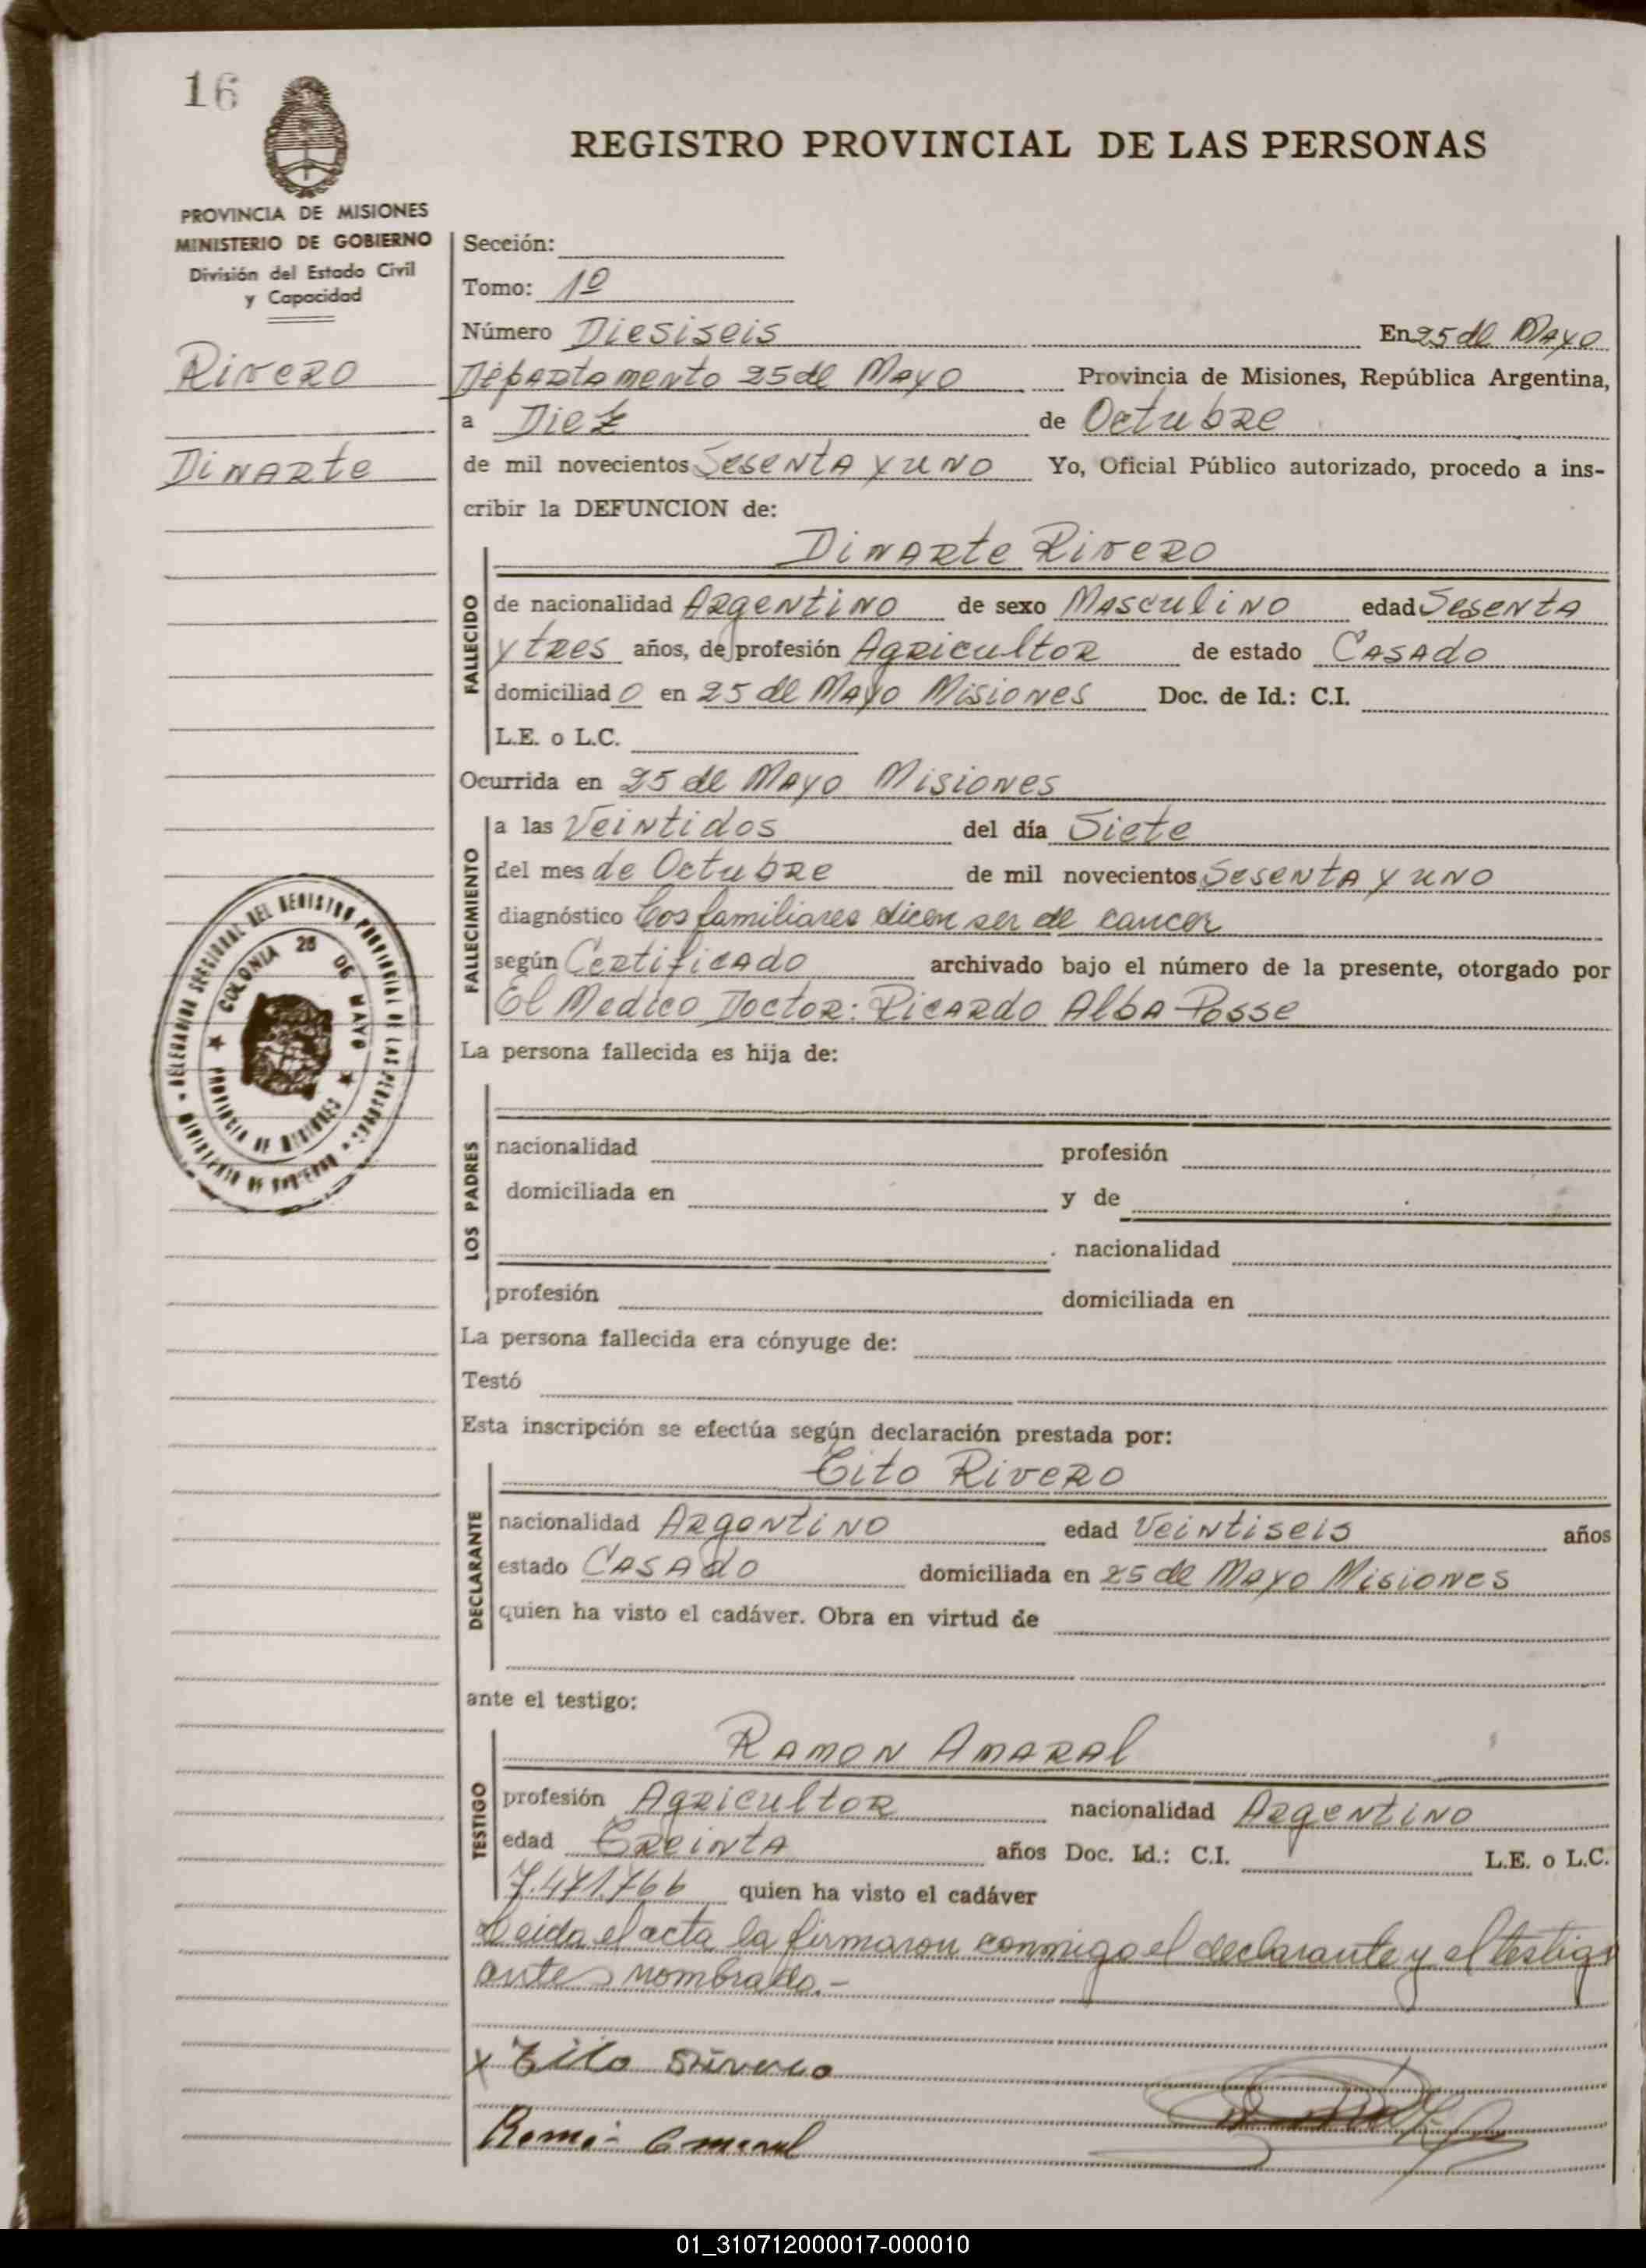 16
REGISTRO PROVINCIAL DE LAS PERSONAS
PROVINCIA DE MISIONES
MINISTERIO DE GOBIERNO
División del Estado Civil
y Capacidad
Rivero
Dinarte
Sección:
Tomo: 1º
Número Diesiseis En 25 de Mayo
Departamento 25 de Mayo Provincia de Misiones, República Argentina,
a Diez de Octubre
de mil novecientos Sesenta y uno Yo, Oficial Público autorizado, procedo a ins-
cribir la DEFUNCION de:
Dinarte Rivero
FALLECIDO
de nacionalidad Argentino de sexo Masculino edad Sesenta
y tres años, de profesión Agricultor de estado Casado
domiciliado en 25 de Mayo Misiones Doc. de Id.: C.I.
L.E. o L.C.
Ocurrida en 25 de Mayo Misiones
FALLECIMIENTO
a las Veintidos del día Siete
del mes de Octubre de mil novecientos Sesenta y uno
diagnóstico Los familiares dicen ser de cancer
según Certificado archivado bajo el número de la presente, otorgado por
El Medico Doctor: Ricardo Alba Posse
DELEGACION SECCIONAL DEL REGISTRO PROVINCIAL DE LAS PERSONAS
MINISTERIO DE GOBIERNO
COLONIA 25 DE MAYO
PROVINCIA DE MISIONES
La persona fallecida es hija de:
LOS PADRES
nacionalidad profesión
domiciliada en y de
nacionalidad
profesión domiciliada en
La persona fallecida era cónyuge de:
Testó
Esta inscripción se efectúa según declaración prestada por:
Tito Rivero
DECLARANTE
nacionalidad Argentino edad Veintiseis años
estado Casado domiciliada en 25 de Mayo Misiones
quien ha visto el cadáver. Obra en virtud de
ante el testigo:
Ramon Amaral
TESTIGO
profesión Agricultor nacionalidad Argentino
edad Treinta años Doc. Id.: C.I. L.E. o L.C.
7.471.766 quien ha visto el cadáver
Leida el acta la firmaron conmigo el declarante y el testigo
antes nombrado.-
x Tito Rivero
Ramon Amaral
01_310712000017-000010